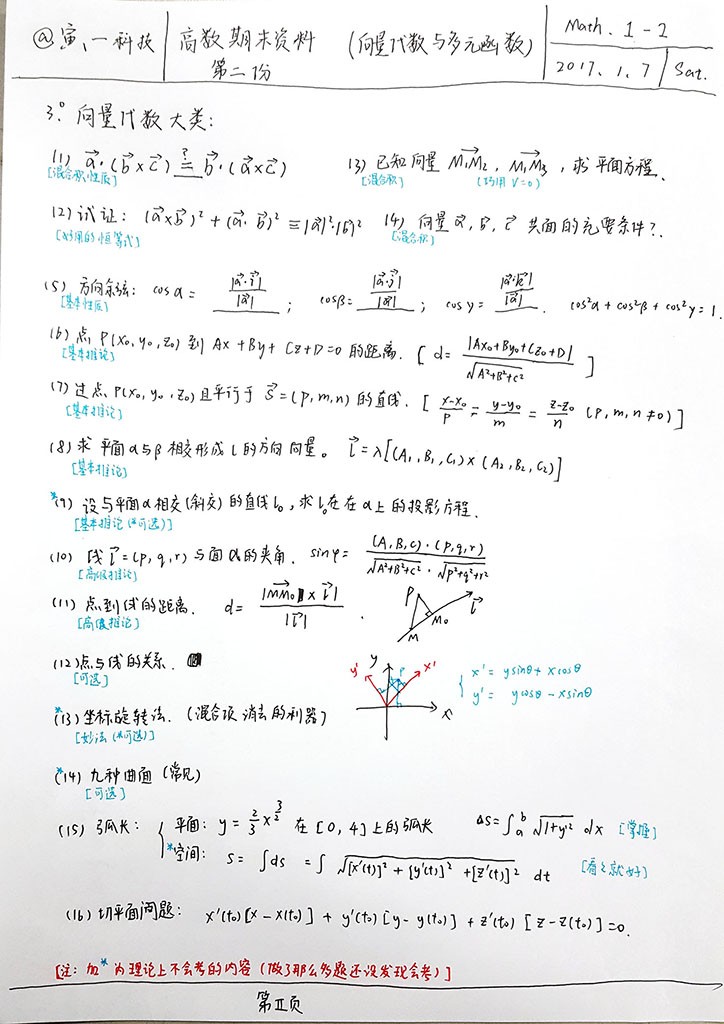 @寅、一科技 高数期末资料 (向量代数与多元函数) Math. 1-2
第二份 2017.1.7 Sat.
3° 向量代数大类:
(1) a⃗·(b⃗×c⃗) ≟ b⃗·(a⃗×c⃗) (3) 已知向量 M₁M₂⃗, M₁M₃⃗, 求平面方程.
[混合积,性质] [混合积] (巧用 V=0)
(2) 试证: (a⃗×b⃗)² + (a⃗·b⃗)² ≡ |a⃗|²·|b⃗|² (4) 向量 a⃗, b⃗, c⃗ 共面的充要条件?.
[好用的恒等式] [混合积]
(5) 方向余弦: cosα = |a⃗·i⃗|/|a⃗| ; cosβ = |a⃗·j⃗|/|a⃗| ; cosγ = |a⃗·k⃗|/|a⃗| . cos²α + cos²β + cos²γ = 1.
[基本性质]
(6) 点 P(x₀, y₀, z₀) 到 Ax + By + Cz + D = 0 的距离. [ d = |Ax₀+By₀+Cz₀+D|/√(A²+B²+C²) ]
[基本推论]
(7) 过点 P(x₀, y₀, z₀) 且平行于 s⃗ = (p, m, n) 的直线. [ (x-x₀)/p = (y-y₀)/m = (z-z₀)/n (p, m, n ≠ 0) ]
[基本推论]
(8) 求平面 α 与 β 相交形成 l 的方向向量。 l⃗ = λ[(A₁, B₁, C₁) × (A₂, B₂, C₂)]
[基本推论]
*(9) 设与平面 α 相交(斜交)的直线 l₀, 求 l₀在在 α 上的投影方程.
[基本推论(*可选)]
(10) 线 l⃗ = (p, q, r) 与面 α 的夹角. sinφ = (A, B, C)·(p, q, r)/(√(A²+B²+C²)·√(p²+q²+r²))
[高级推论]
(11) 点到线的距离. d = |MM₀⃗ × l⃗|/|l⃗| . P M M₀ l⃗
[高级推论]
(12) 点与线的关系. y y' P x' x
[可选] { x' = ysinθ + xcosθ
y' = ycosθ - xsinθ
*(13) 坐标旋转法. (混合项消去的利器)
[妙法(*可选)]
*(14) 九种曲面 (常见)
[可选]
(15) 弧长: { 平面: y = 2/3 x^(3/2) 在 [0, 4] 上的弧长 ΔS = ∫ₐᵇ √(1+y'²) dx [掌握]
*空间: S = ∫ds = ∫ √([x'(t)]² + [y'(t)]² + [z'(t)]²) dt [看之就好]
(16) 切平面问题: x'(t₀)[x - x(t₀)] + y'(t₀)[y - y(t₀)] + z'(t₀)[z - z(t₀)] = 0.
[注: 加 * 为理论上不会考的内容 (做了那么多题还没发现会考)]
第Ⅱ页